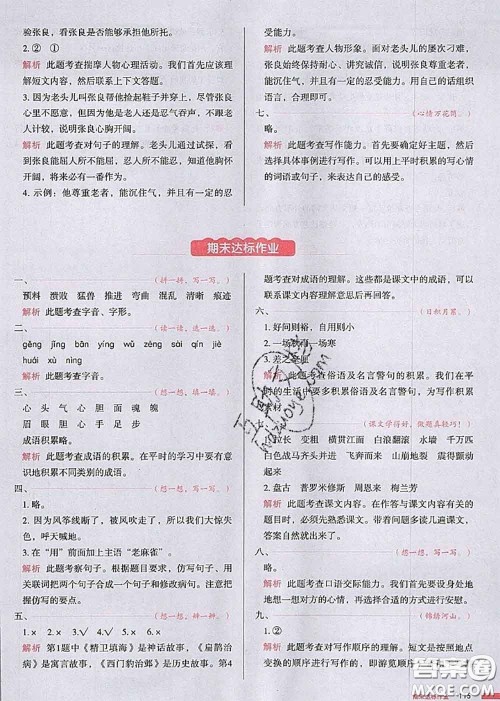 验张良，看张良是否能够承担他所托。
2. ② ①
解析 此题考查揣摩人物心理活动。我们首先应该理
解短文内容，然后根据上下文答题。
3. 因为老头儿叫张良帮他捡起鞋子并穿上，尽管张良
心里不愿意，但是张良还是忍气吞声，不跟老
人计较，说明张良心胸开阔。
解析 此题考查对句子的理解。老头儿通过试探，看
到张良能屈人所不能屈，忍人所不能忍，知道他胸怀开
阔，将来必有一番作为。
4. 示例：他尊重老者，能沉住气，并且有一定的忍
受能力。
解析 此题考查人物形象。面对老头儿的屡次刁难，
张良始终保持耐心、讲究诚信，说明张良尊重老者，
能沉住气，并且有一定的忍受能力。用自己的话组织
语言，合理即可。
七、（心情万花筒。）
略。
解析 此题考查写作能力。首先要确定好心情，然后
选择具体事例进行写作。可以用上平时积累的写心情
的词语或句子，抒发自己的感受。
期末达标作业
一、（拼一拼，写一写。）
预料 溃败 猛兽 推进 弯曲 混乱 清晰 痕迹
解析 此题考查字音、字形。
二、（读一读，选一选。）
gěng jīng bò yùn mó zéng sǎn jiá jiē
huái xù nìng
解析 此题考查字音。
三、（想一想，填一填。）
心 头 气 心 胆 面 魂 魄
眉 眼 胆 心 手 足 步
成语积累略。
解析 此题考查成语的积累。在平时的学习中要有意
识地积累不同类别的成语。
四、（想一想，写一写。）
1. 略。
2. 因为风筝线断了，被风吹走了，所以我们大惊失
色，呼天喊地。
3. 在“用”前面加上主语“老麻雀”。
解析 此题考察句子。可以用仿写句子、用
关联词把两个句子合成一句和修改病句。注意不要
重复。
五、（想一想，辨一辨。）
1. × 2. × 3. √ 4. × 5. √ 6. ×
解析 第1题中《精卫填海》是神话故事，《扁鹊治
病》是寓言故事，《西门豹治邺》是历史故事。第4
题考查对成语的理解。这些都是课文中的成语，可以
联系课文内容理解意思后再回答。
六、（日积月累。）
1. 好问则裕，自用则小
2. 一场秋雨一场寒
3. 差之毫厘
解析 此题考查俗语及名言警句的积累。我们在平时
的学习中要多积累俗语及名言警句，为写作积累
素材。
七、（课文学得好，做题真轻巧！）
大堤 山崩地裂 变 横贯江面 白浪翻滚 水墙 千万匹
白色战马 齐头并进 飞奔而来 山崩地裂 震得颤动
起来
2. 盘古 普罗米修斯 周恩来 梅兰芳
解析 此题考查课文内容的积累。在作答关于课文内容的
题目时，必须先熟悉课文。大家答题前多读几遍课文，
类型有很多，不要答混。
八、（想一想，写一写。）
略。
解析 此题考查口语交际能力。我们首先要